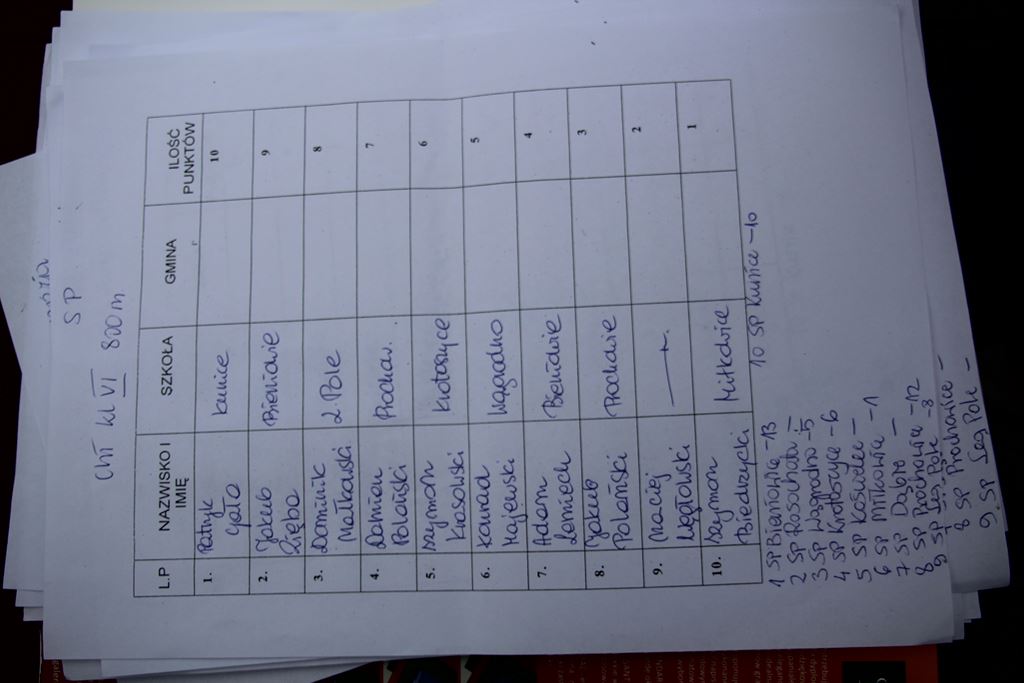 SP
Chł kl VI 800 m
L.P NAZWISKO I IMIĘ SZKOŁA GMINA ILOŚĆ PUNKTÓW
1. Patryk Kunice 10
2. Jakub Zięba Bieniowie 9
3. Dominik Małkowski L Pole 8
4. Damian Polański Prochow. 7
5. Szymon Kłosowski Krotoszyce 6
6. Konrad Majewski Wągrodno 5
7. Adam Lemiech Bieniowie 4
8. Jakub Polański Prochowie 3
9. Maciej Węgłowski — " — 2
10. Szymon Biedrzycki Miłkowice 1
10 SP Kunice - 10
1 SP Bieniowie - 13
2 SP Rosochata —
3 SP Wągrodno - 5
4 SP Krotoszyce - 6
5 SP Koskowice —
6 SP Miłkowice - 1
7 SP —
8 SP Prochowice - 12
9 SP Leg Pole - 8
8 SP Prochowice —
9. SP Leg Pole —